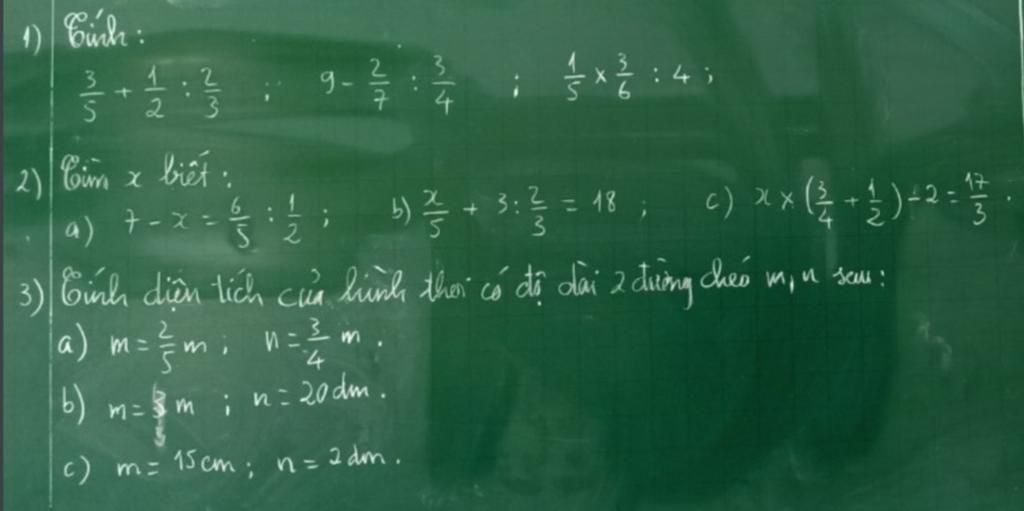 1) Tính:
3/5 + 1/2 : 2/3 ; 9 - 2/7 : 3/4 ; 1/5 × 3/6 : 4 ;
2) Tìm x biết:
a) 7 - x = 6/5 : 1/2 ; b) x/5 + 3 : 2/3 = 18 ; c) x × (3/4 + 1/2) - 2 = 17/3 .
3) Tính diện tích của hình thoi có độ dài 2 đường chéo m, n sau:
a) m = 2/5 m ; n = 3/4 m .
b) m = 3 m ; n = 20 dm .
c) m = 15 cm ; n = 2 dm .